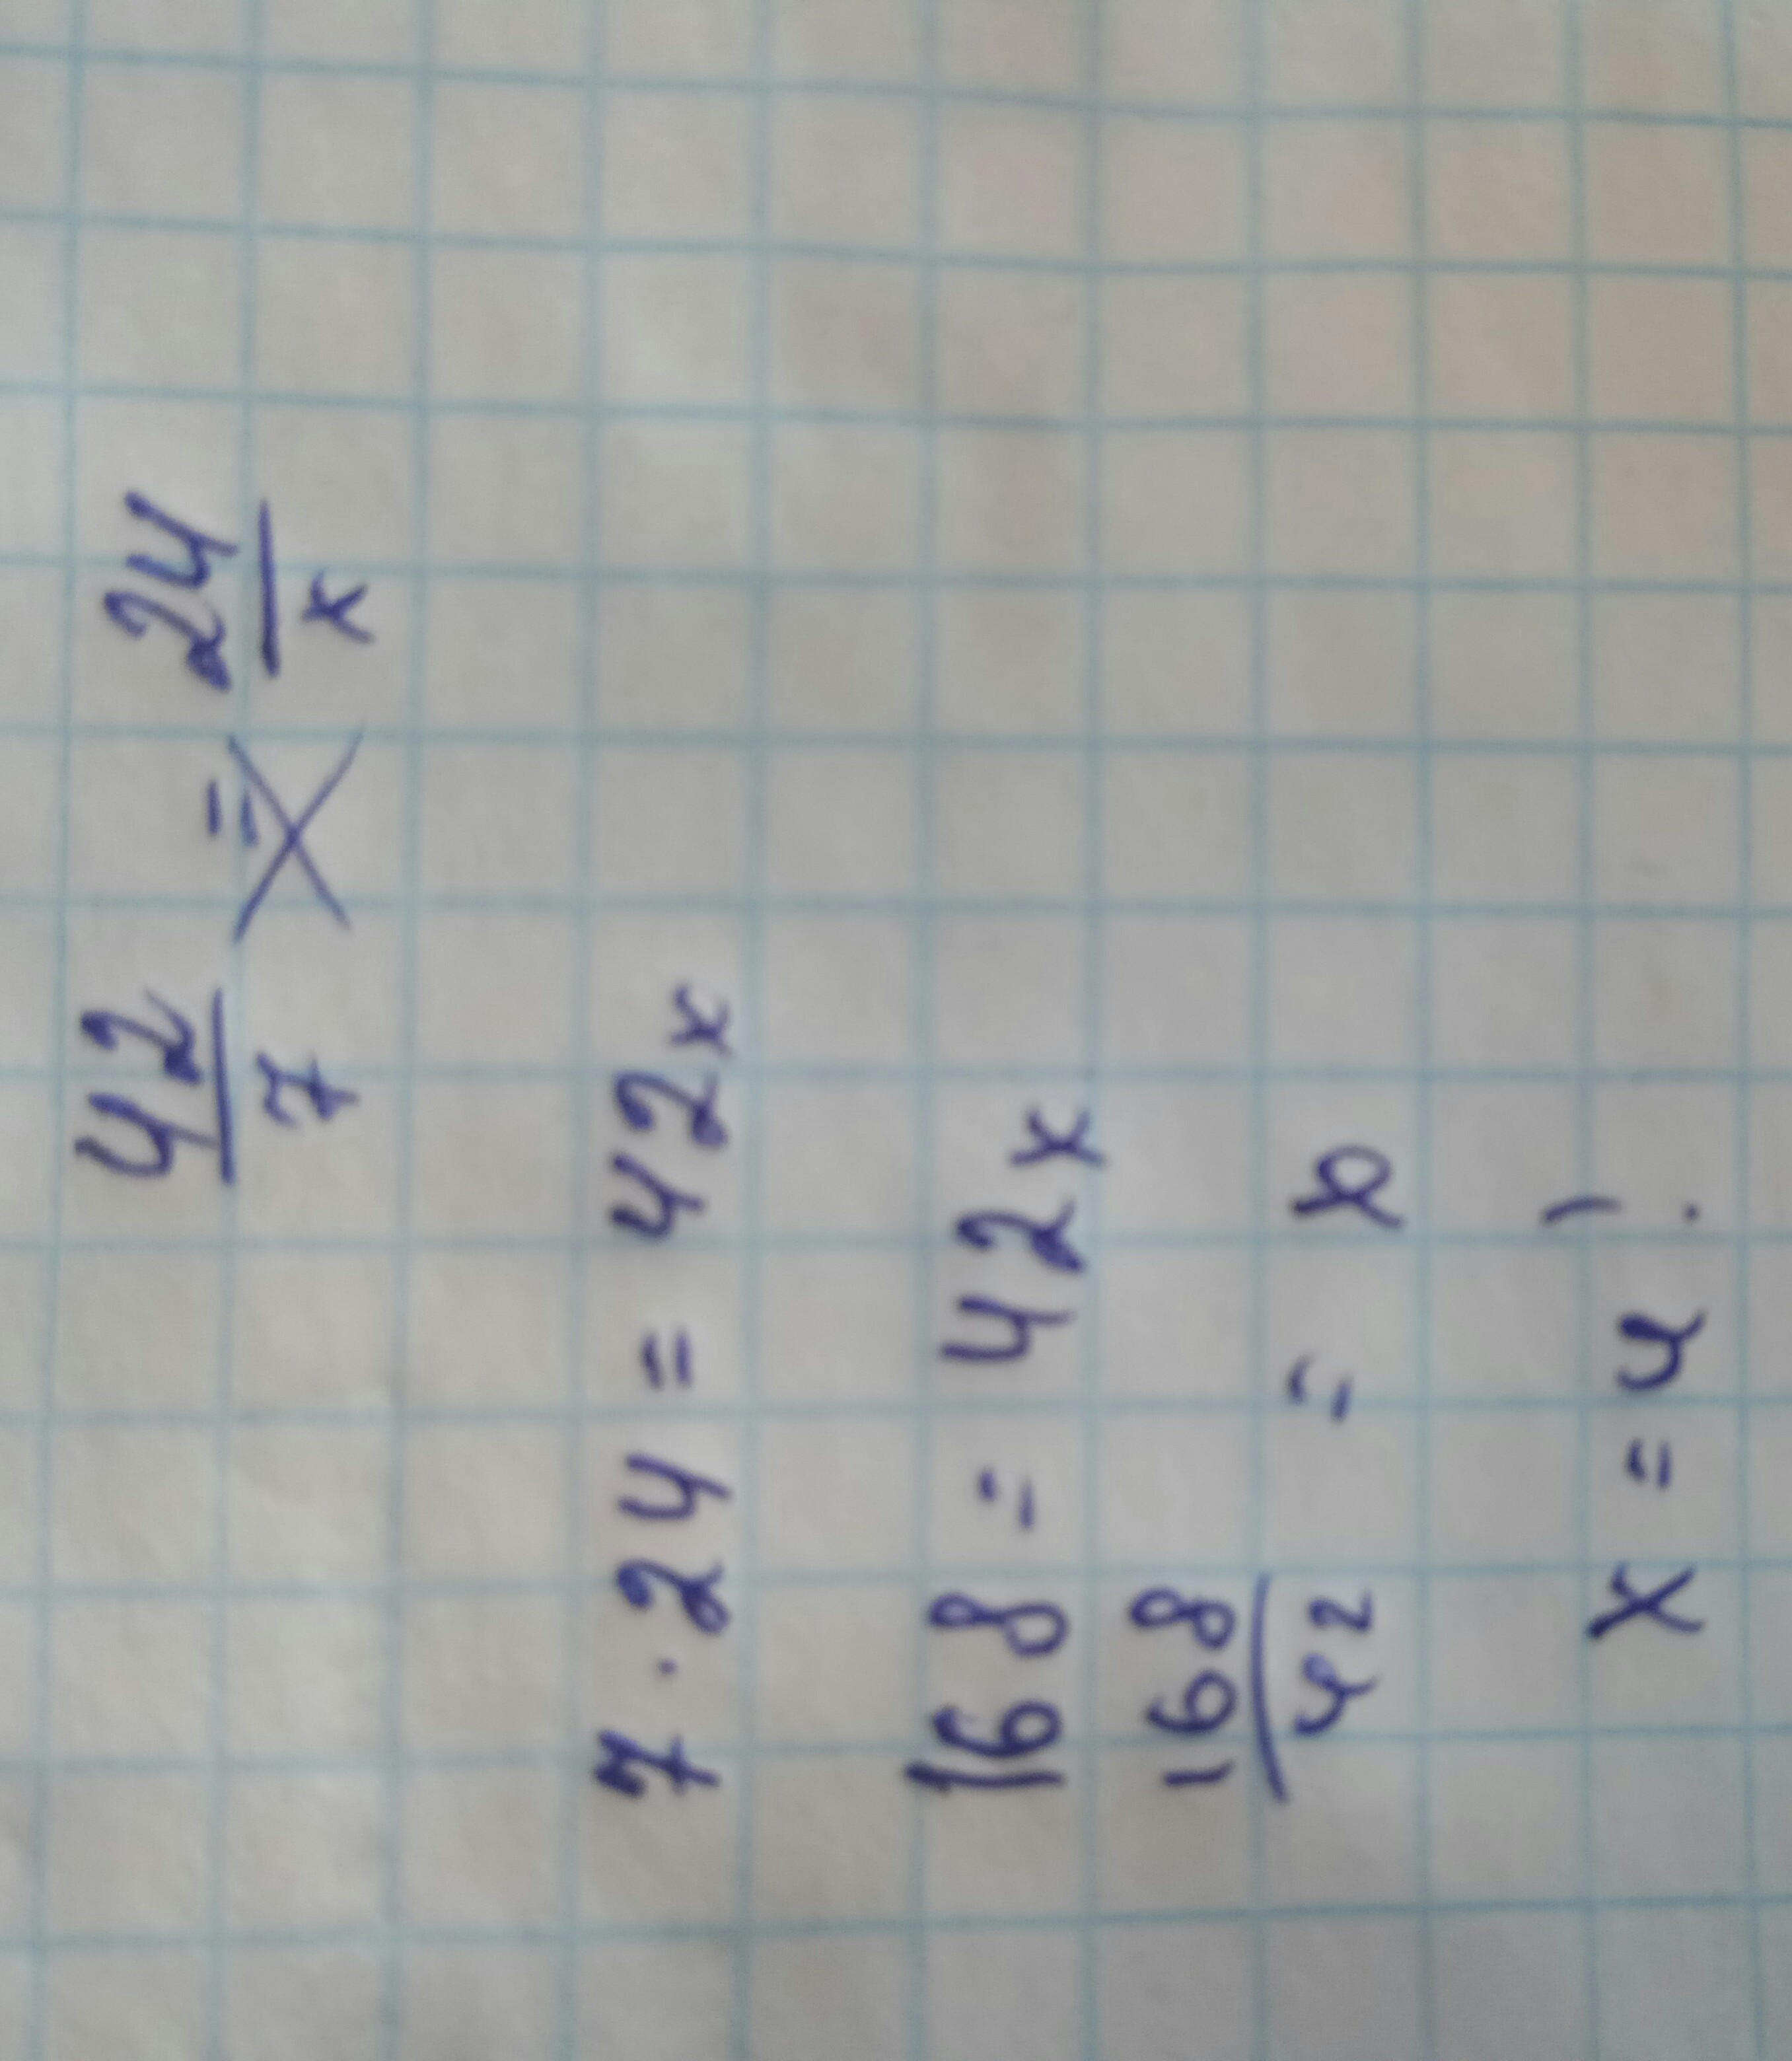 42/7 = 24/x
7 · 24 = 42x
168 = 42x
168/42 = x
x = 4!